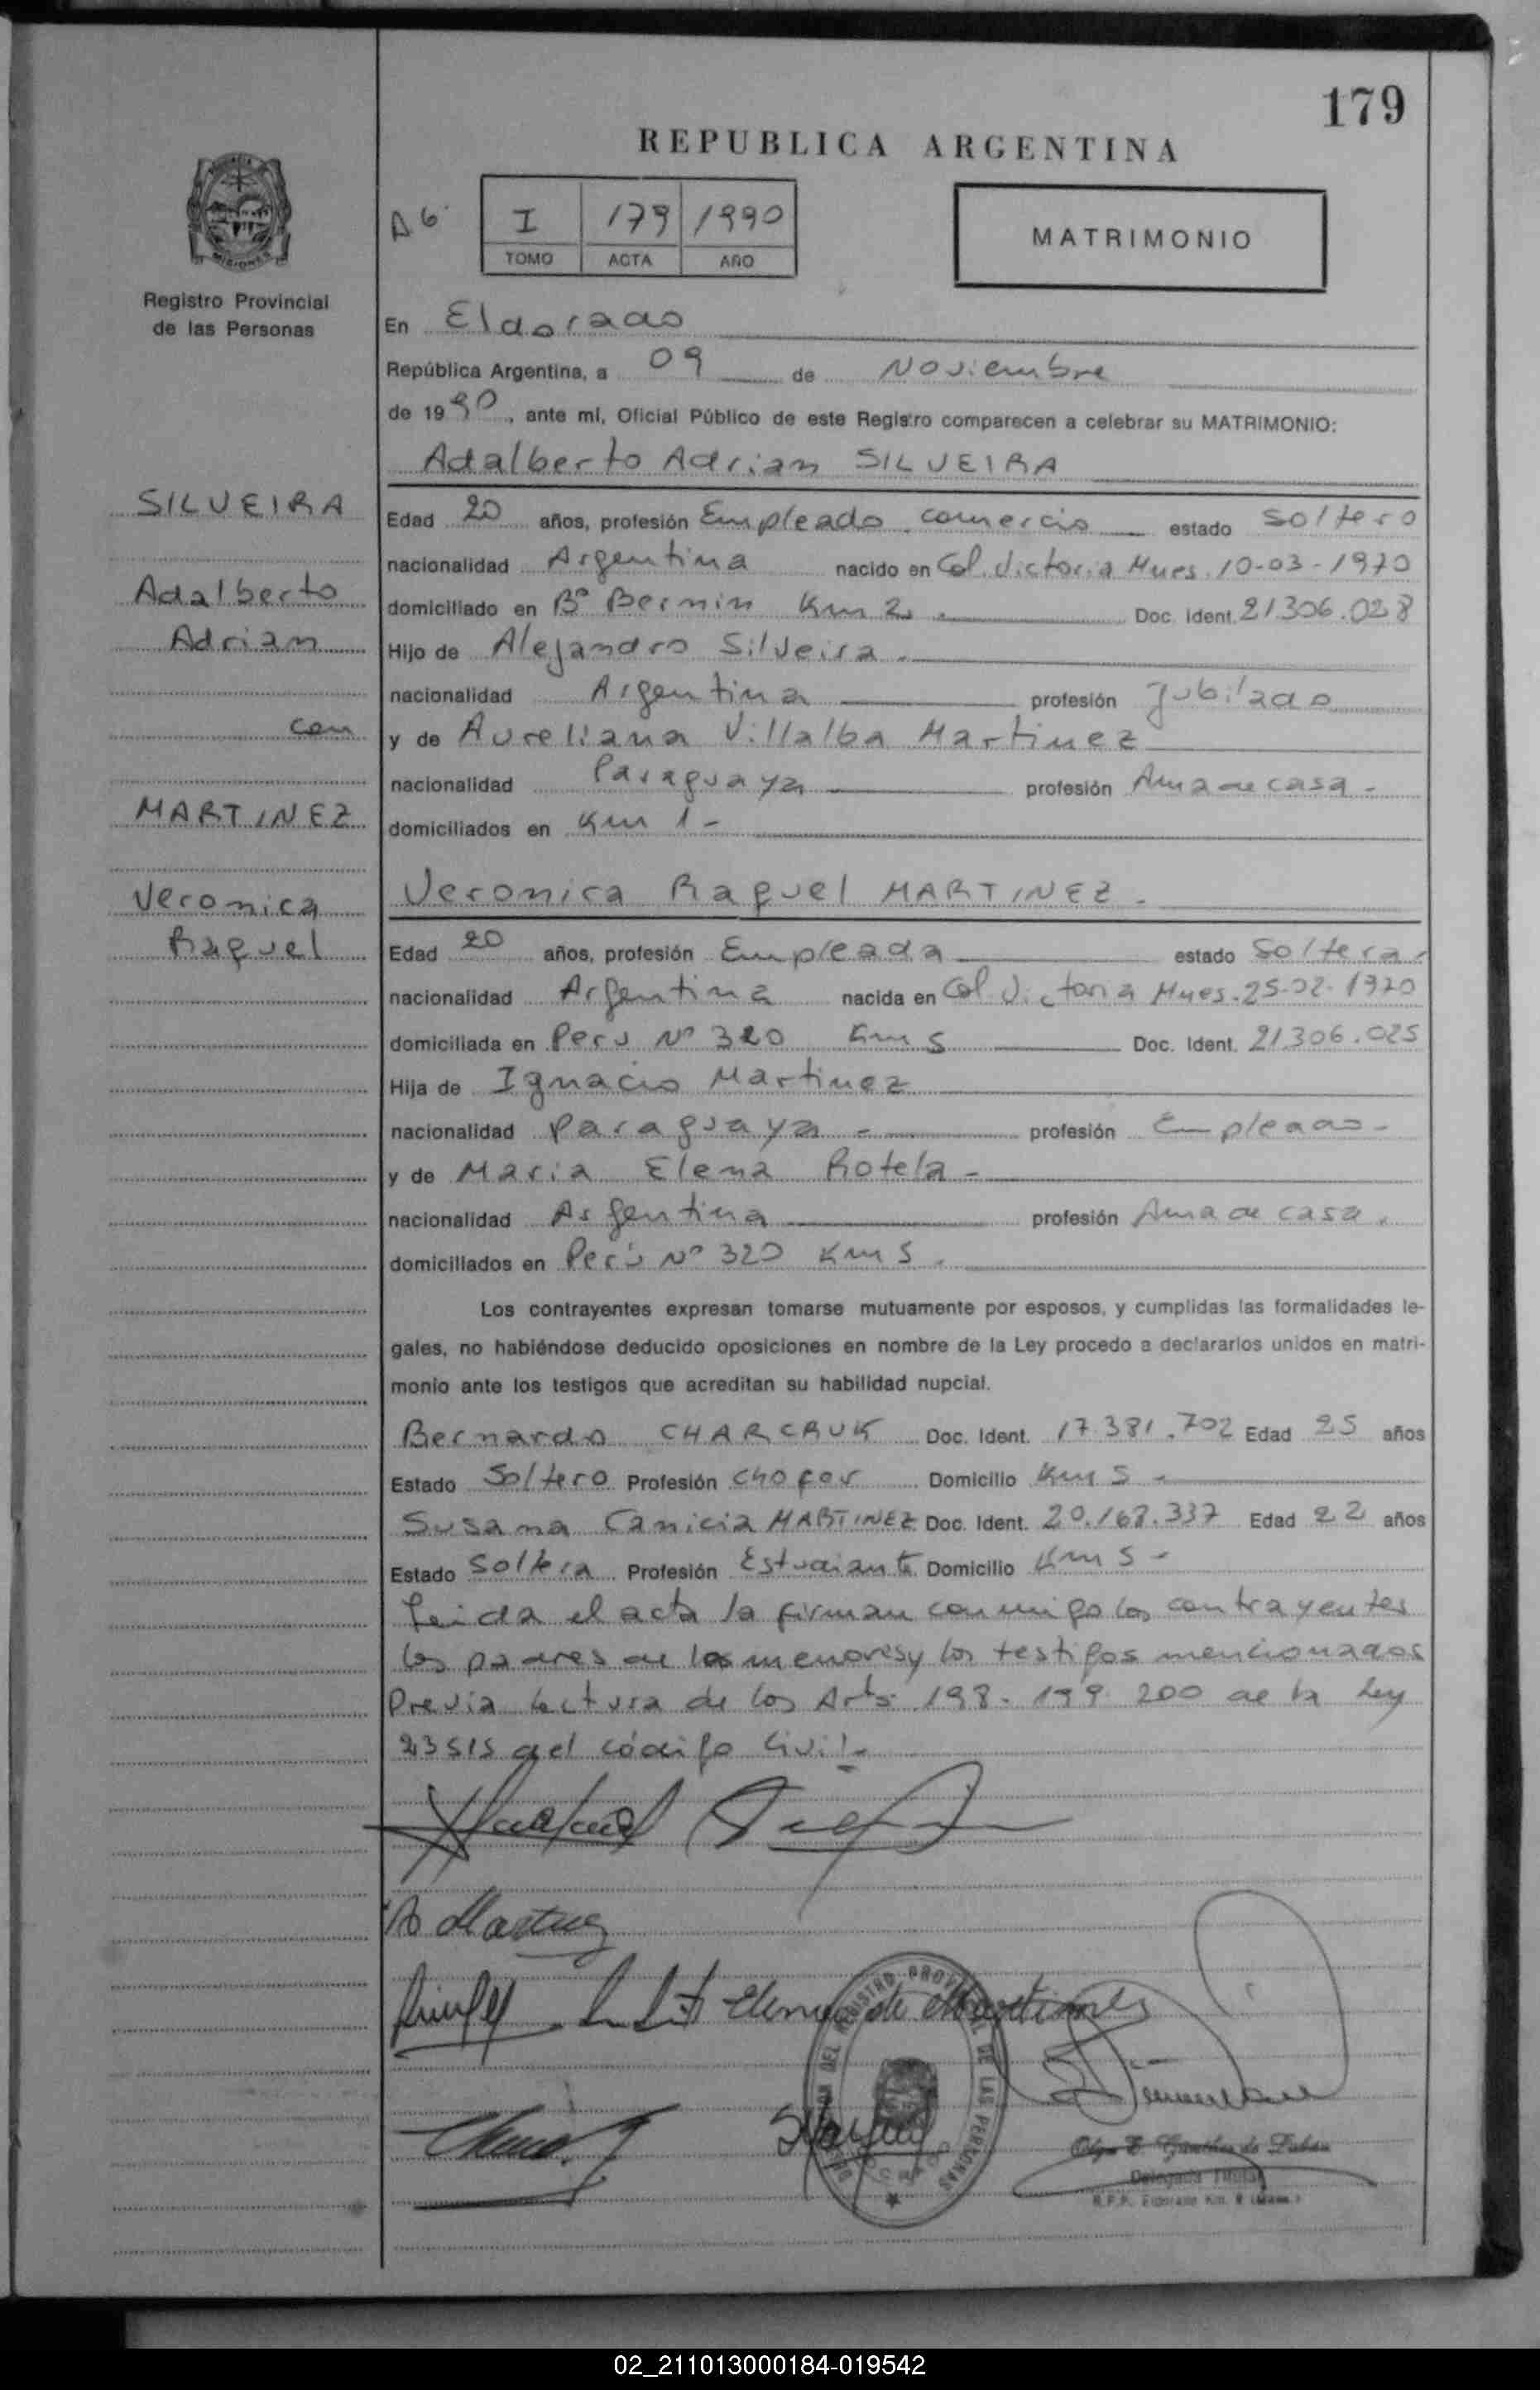 179
REPUBLICA ARGENTINA
I 179 1990
TOMO ACTA AÑO
MATRIMONIO
MISIONES
Registro Provincial
de las Personas
En Eldorado
República Argentina, a 09 de Noviembre
de 1990, ante mi, Oficial Público de este Registro comparecen a celebrar su MATRIMONIO:
Adalberto Adrian SILVEIRA
SILVEIRA
Adalberto
Adrian
con
MARTINEZ
Veronica
Raquel
Edad 20 años, profesión Empleado comercio estado soltero
nacionalidad Argentina nacido en Col. Victoria Mnes. 10-03-1970
domiciliado en Bº Bernin Km 2. Doc. Ident. 21.306.028
Hijo de Alejandro Silveira.
nacionalidad Argentina profesión Jubilado
y de Aureliana Villalba Martinez
nacionalidad Paraguaya profesión Ama de casa.
domiciliados en Km 1-
Veronica Raquel MARTINEZ.
Edad 20 años, profesión Empleada estado soltera.
nacionalidad Argentina nacida en Col Victoria Mnes. 25-02-1970
domiciliada en Perú Nº 320 Km 5 Doc. Ident. 21.306.025
Hija de Ignacio Martinez
nacionalidad Paraguaya - profesión Empleado-
y de Maria Elena Rotela-
nacionalidad Argentina profesión Ama de casa.
domiciliados en Perú Nº 320 Km 5.
Los contrayentes expresan tomarse mutuamente por esposos, y cumplidas las formalidades le-
gales, no habiéndose deducido oposiciones en nombre de la Ley procedo a declararlos unidos en matri-
monio ante los testigos que acreditan su habilidad nupcial.
Bernardo CHARCRUK Doc. Ident. 17.381.702 Edad 25 años
Estado Soltero Profesión chofer Domicilio Km 5-
Susana Canicia MARTINEZ Doc. Ident. 20.168.337 Edad 22 años
Estado Soltera Profesión Estudiante Domicilio Km 5-
Leida el acta la firman conmigo los contrayentes
los padres de los menores y los testigos mencionados
Previa lectura de los Arts. 198-199 200 de la Ley
23515 del código Civil-
Martinez
Elena de Martinez
DEL REGISTRO PROVINCIAL DE LAS PERSONAS
Delegada Titular
02_211013000184-019542